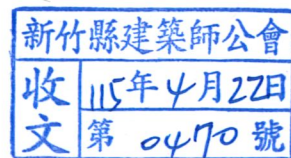 新竹縣建築師公會
收文
115年4月22日
第 0470 號